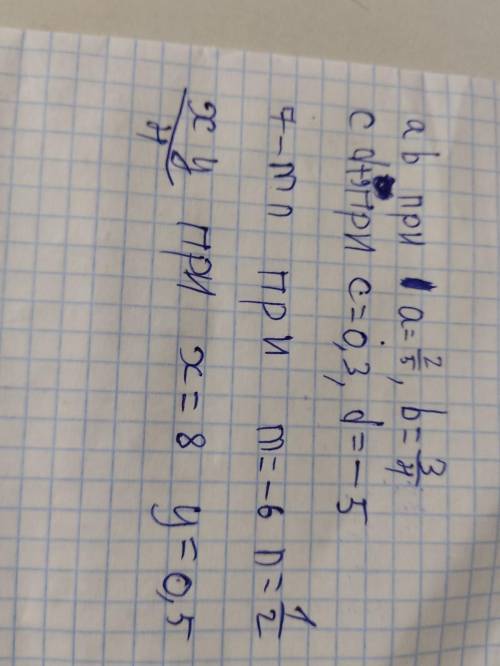 ab при a=2/5, b=3/4
cd+ при c=0,3, d=-5
7-mn при m=-6 n=1/2
xy/4 при x=8 y=0,5